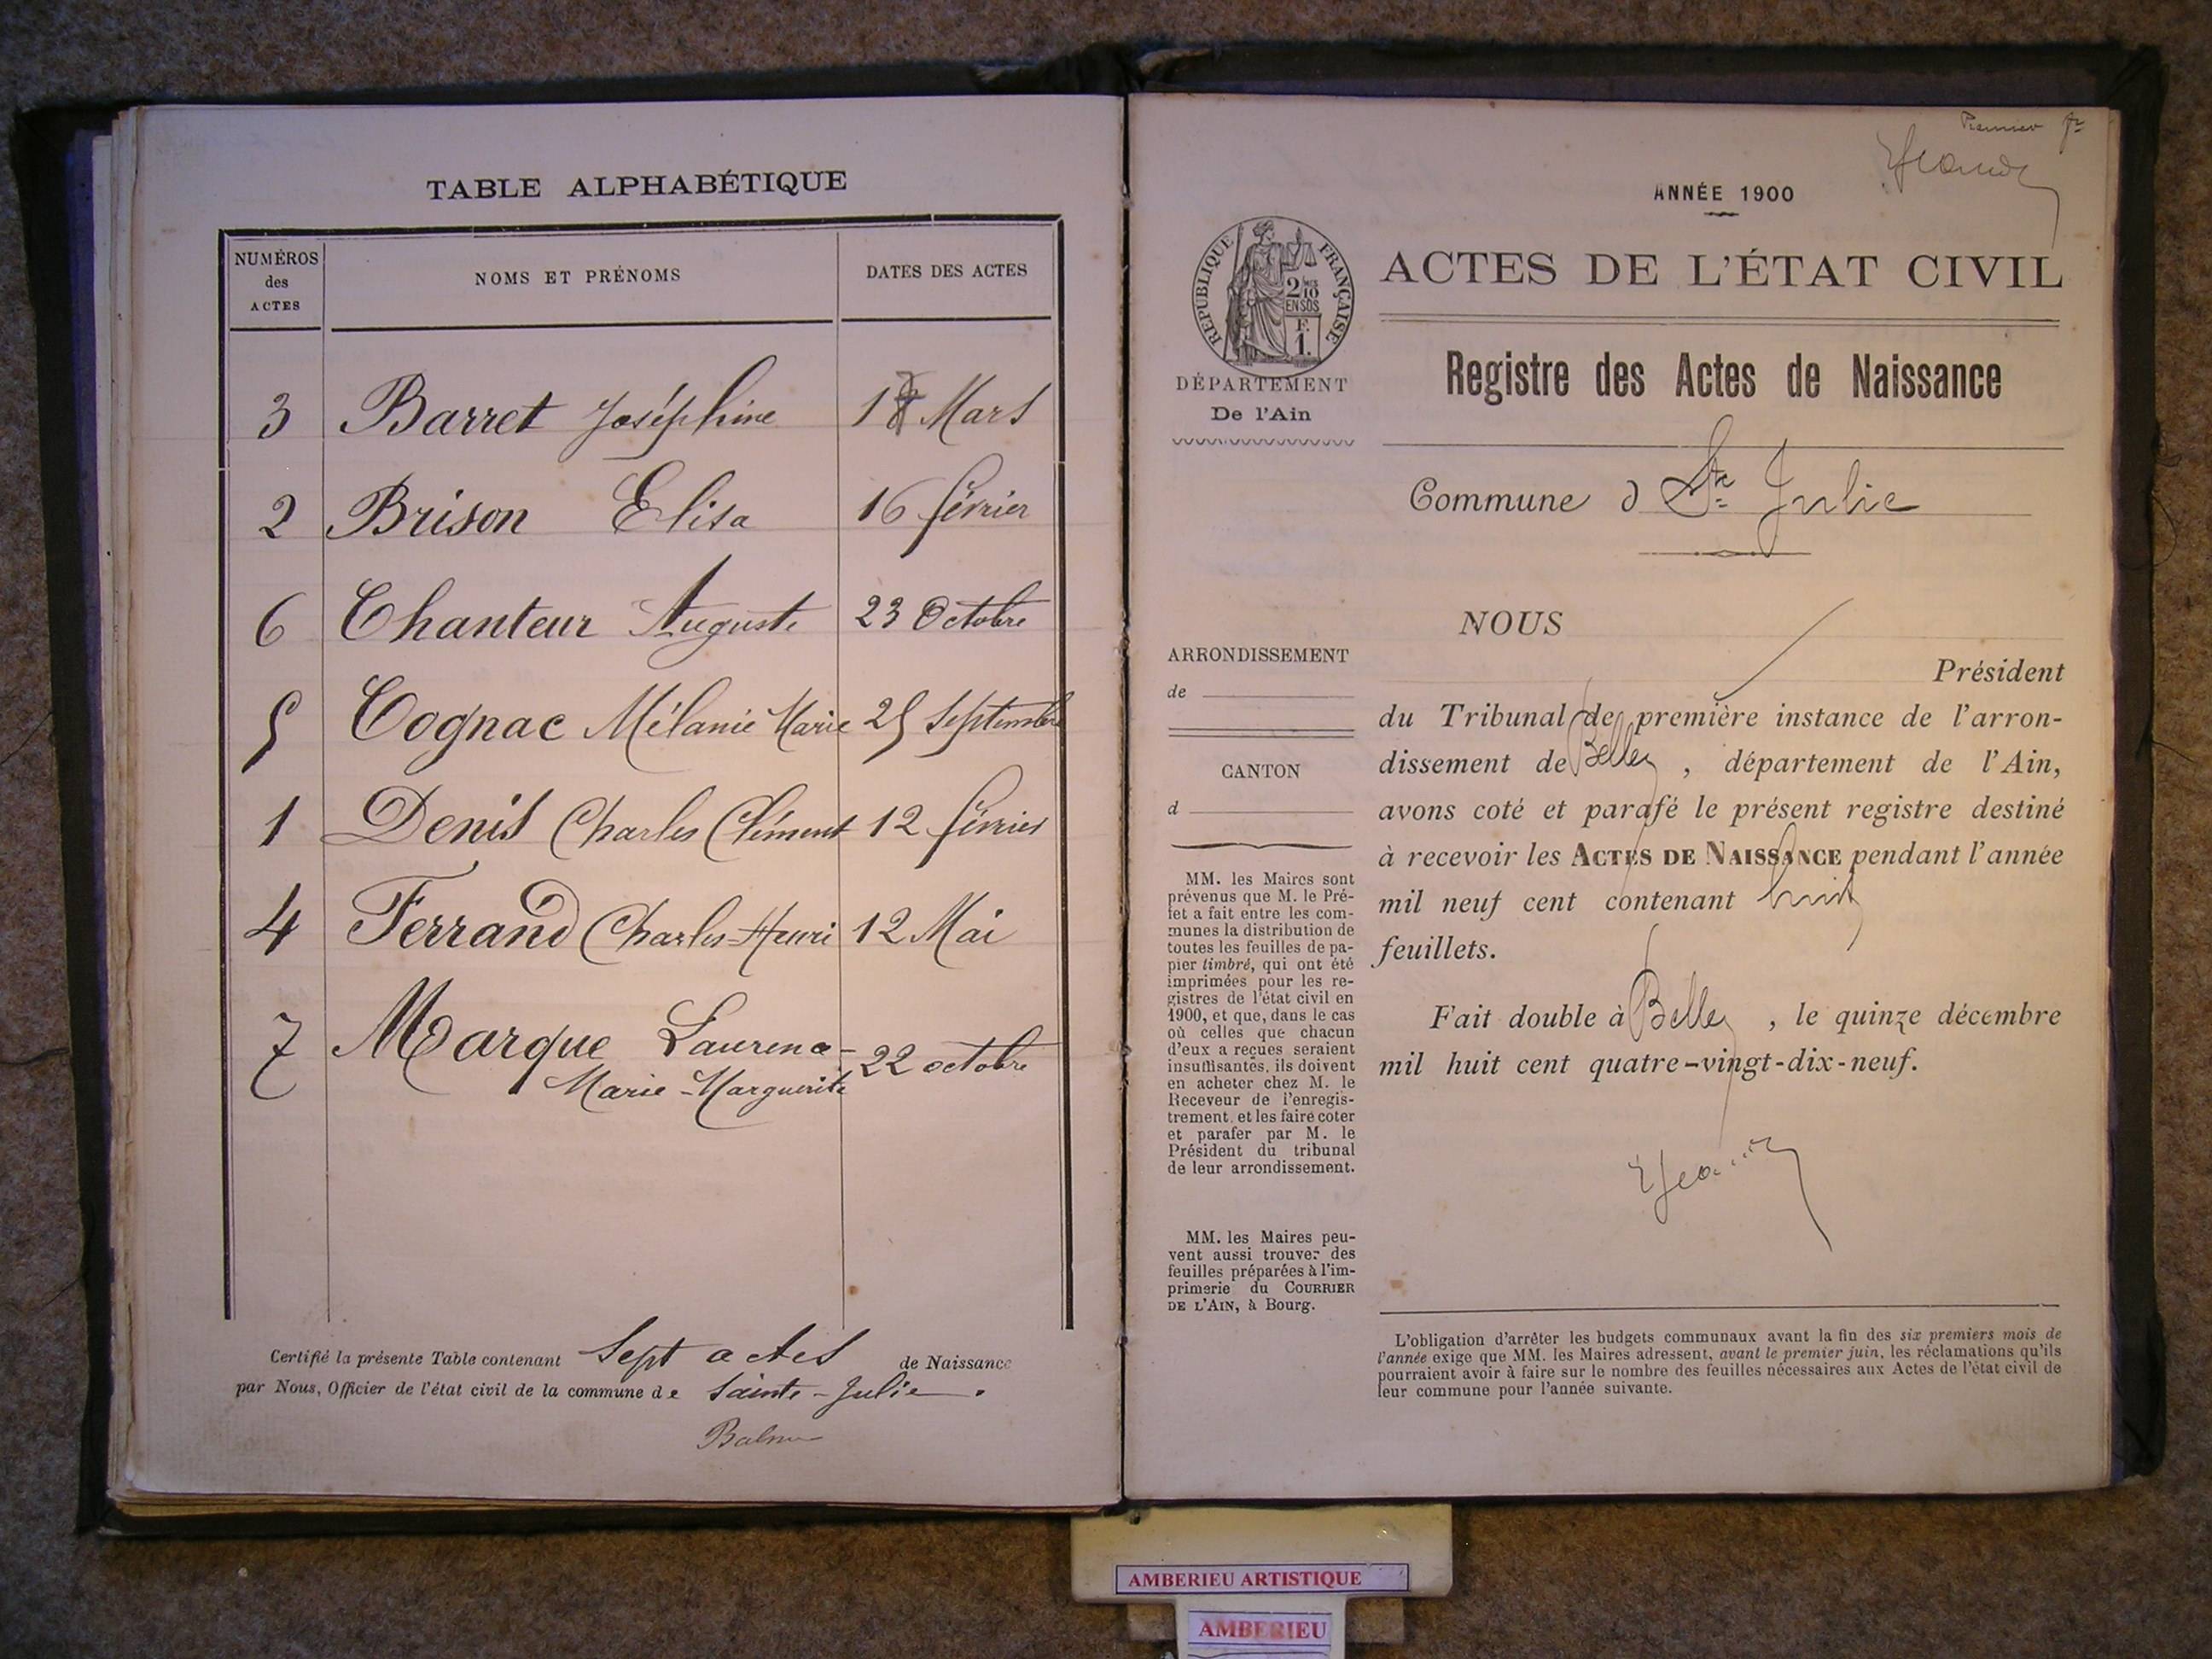 TABLE ALPHABÉTIQUE
NUMÉROS
des
ACTES
NOMS ET PRÉNOMS
DATES DES ACTES
3 Barret Joséphine Mars
2 Brison Elisa 16 février
6 Chanteur Auguste 23 Octobre
5 Cognac Mélanie Marie 25 Septembre
1 Denis Charles Clément 12 février
4 Ferrand Charles-Henri 12 Mai
7 Marque Laurence-
Marie-Marguerite 22 octobre
Certifié la présente Table contenant Sept actes de Naissance
par Nous, Officier de l'état civil de la commune de Sainte-Julie.
Premier
ANNÉE 1900
RÉPUBLIQUE FRANÇAISE
2/10
EN SUS
F.
1.
ACTES DE L'ÉTAT CIVIL
DÉPARTEMENT
De l'Ain
Registre des Actes de Naissance
Commune d Ste Julie
ARRONDISSEMENT
de
CANTON
d
MM. les Maires sont
prévenus que M. le Pré-
fet a fait entre les com-
munes la distribution de
toutes les feuilles de pa-
pier timbré, qui ont été
imprimées pour les re-
gistres de l'état civil en
1900, et que, dans le cas
où celles que chacun
d'eux a reçues seraient
insuffisantes, ils doivent
en acheter chez M. le
Receveur de l'enregis-
trement, et les faire coter
et parafer par M. le
Président du tribunal
de leur arrondissement.
MM. les Maires peu-
vent aussi trouver des
feuilles préparées à l'im-
primerie du COURRIER
DE L'AIN, à Bourg.
NOUS
Président
du Tribunal de première instance de l'arron-
dissement de Belley, département de l'Ain,
avons coté et parafé le présent registre destiné
à recevoir les ACTES DE NAISSANCE pendant l'année
mil neuf cent contenant huit
feuillets.
Fait double à Belley, le quinze décembre
mil huit cent quatre-vingt-dix-neuf.
L'obligation d'arrêter les budgets communaux avant la fin des six premiers mois de
l'année exige que MM. les Maires adressent, avant le premier juin, les réclamations qu'ils
pourraient avoir à faire sur le nombre des feuilles nécessaires aux Actes de l'état civil de
leur commune pour l'année suivante.
AMBERIEU ARTISTIQUE
AMBERIEU